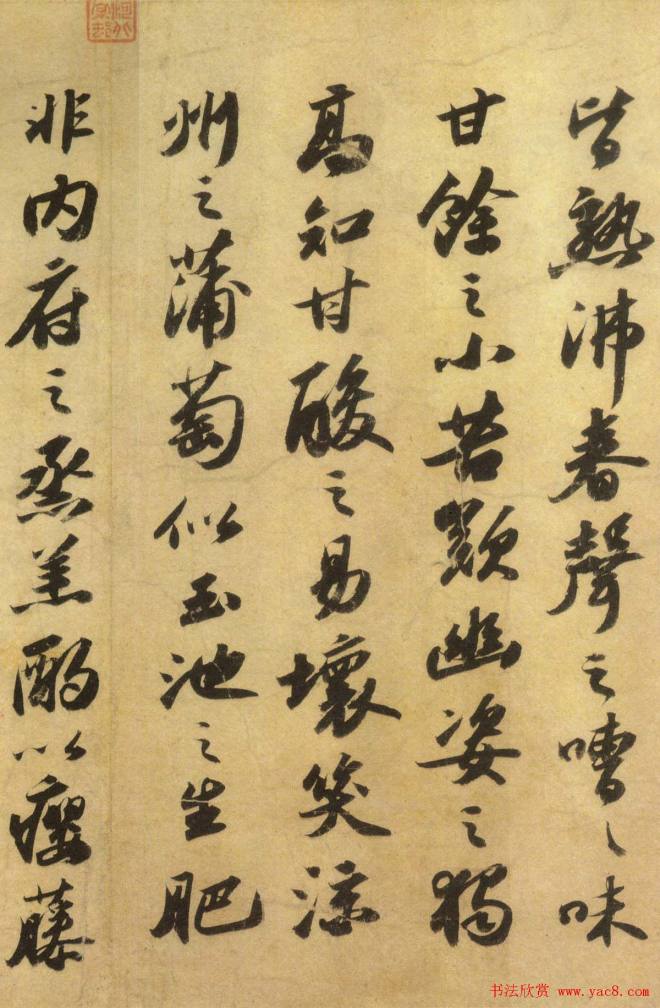 皆熟沸舂聲之嘈〻味
甘餘之小苦歎幽姿之獨
高知甘酸之易壞笑涼
州之蒲萄似玉池之生肥
非内府之蒸羔酌以癭藤
书法欣赏 www.yac8.com